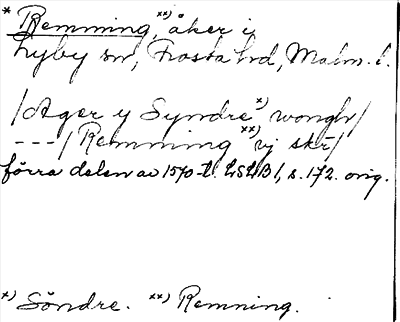 * Remming, xx) åker i
Lyby sn, Frosta hd, Malm. l.
/Ager y Syndre x) wongh/
---/ Remming xx) vj skr/
förra delen av 1570-t. LSLB1, s. 172. orig.
x) Söndre. xx) Remning.